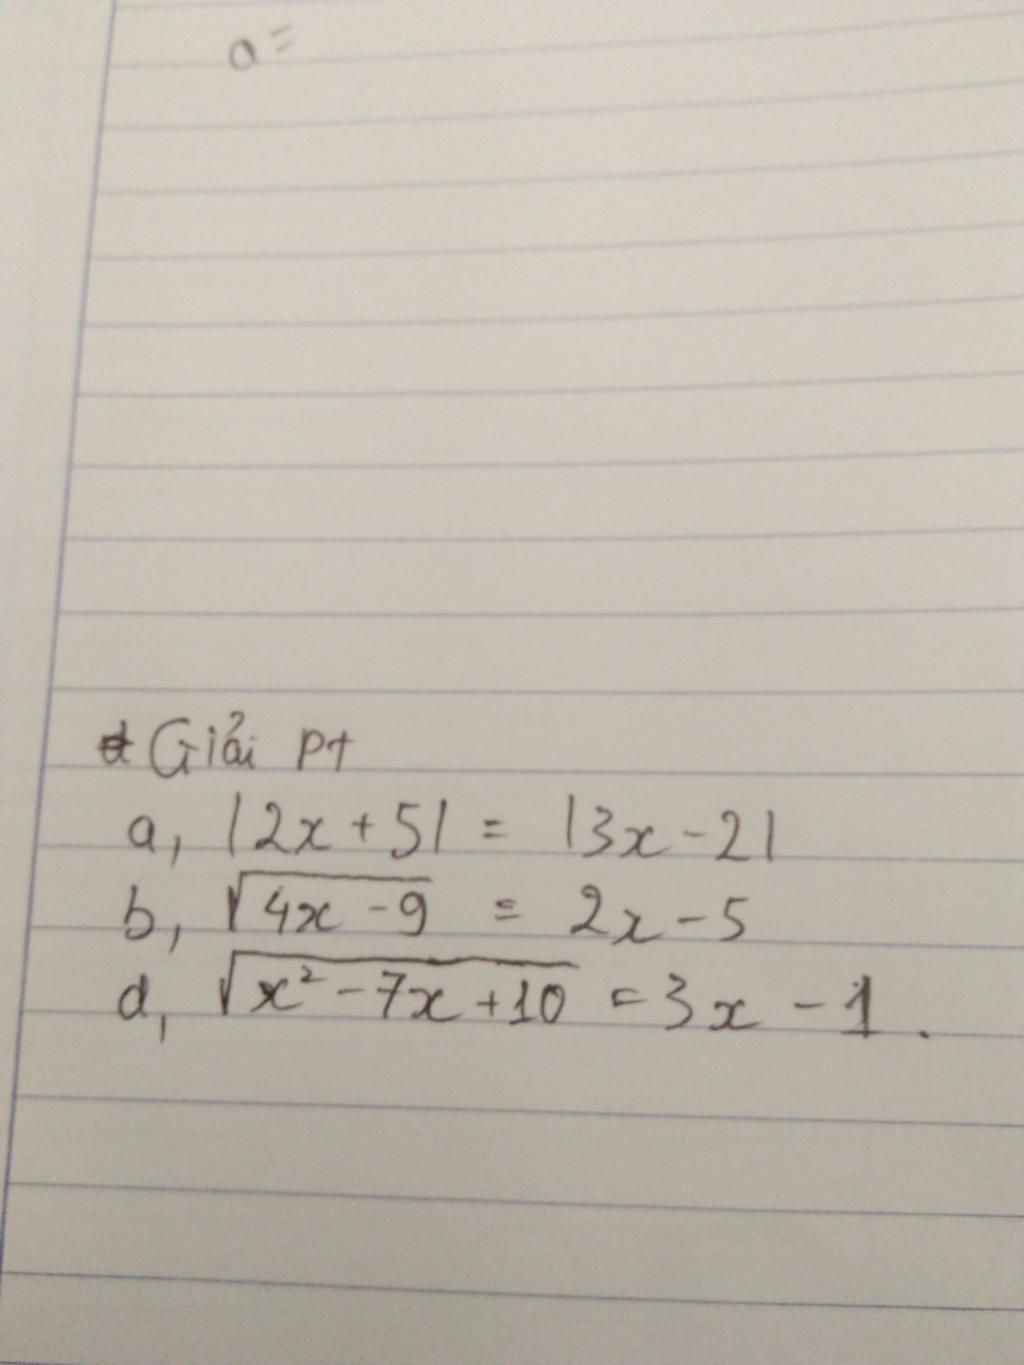 a =
Giải pt
a, |2x + 5| = |3x - 2|
b, √(4x - 9) = 2x - 5
d, √(x² - 7x + 10) = 3x - 1.